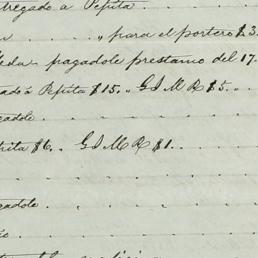 tregado a Pepita
" para el portero $3
pagadole prestamo del 17.
Pepita $15.. G I M R $5..
gadole
rita $6.. G I M R $1.
gadole